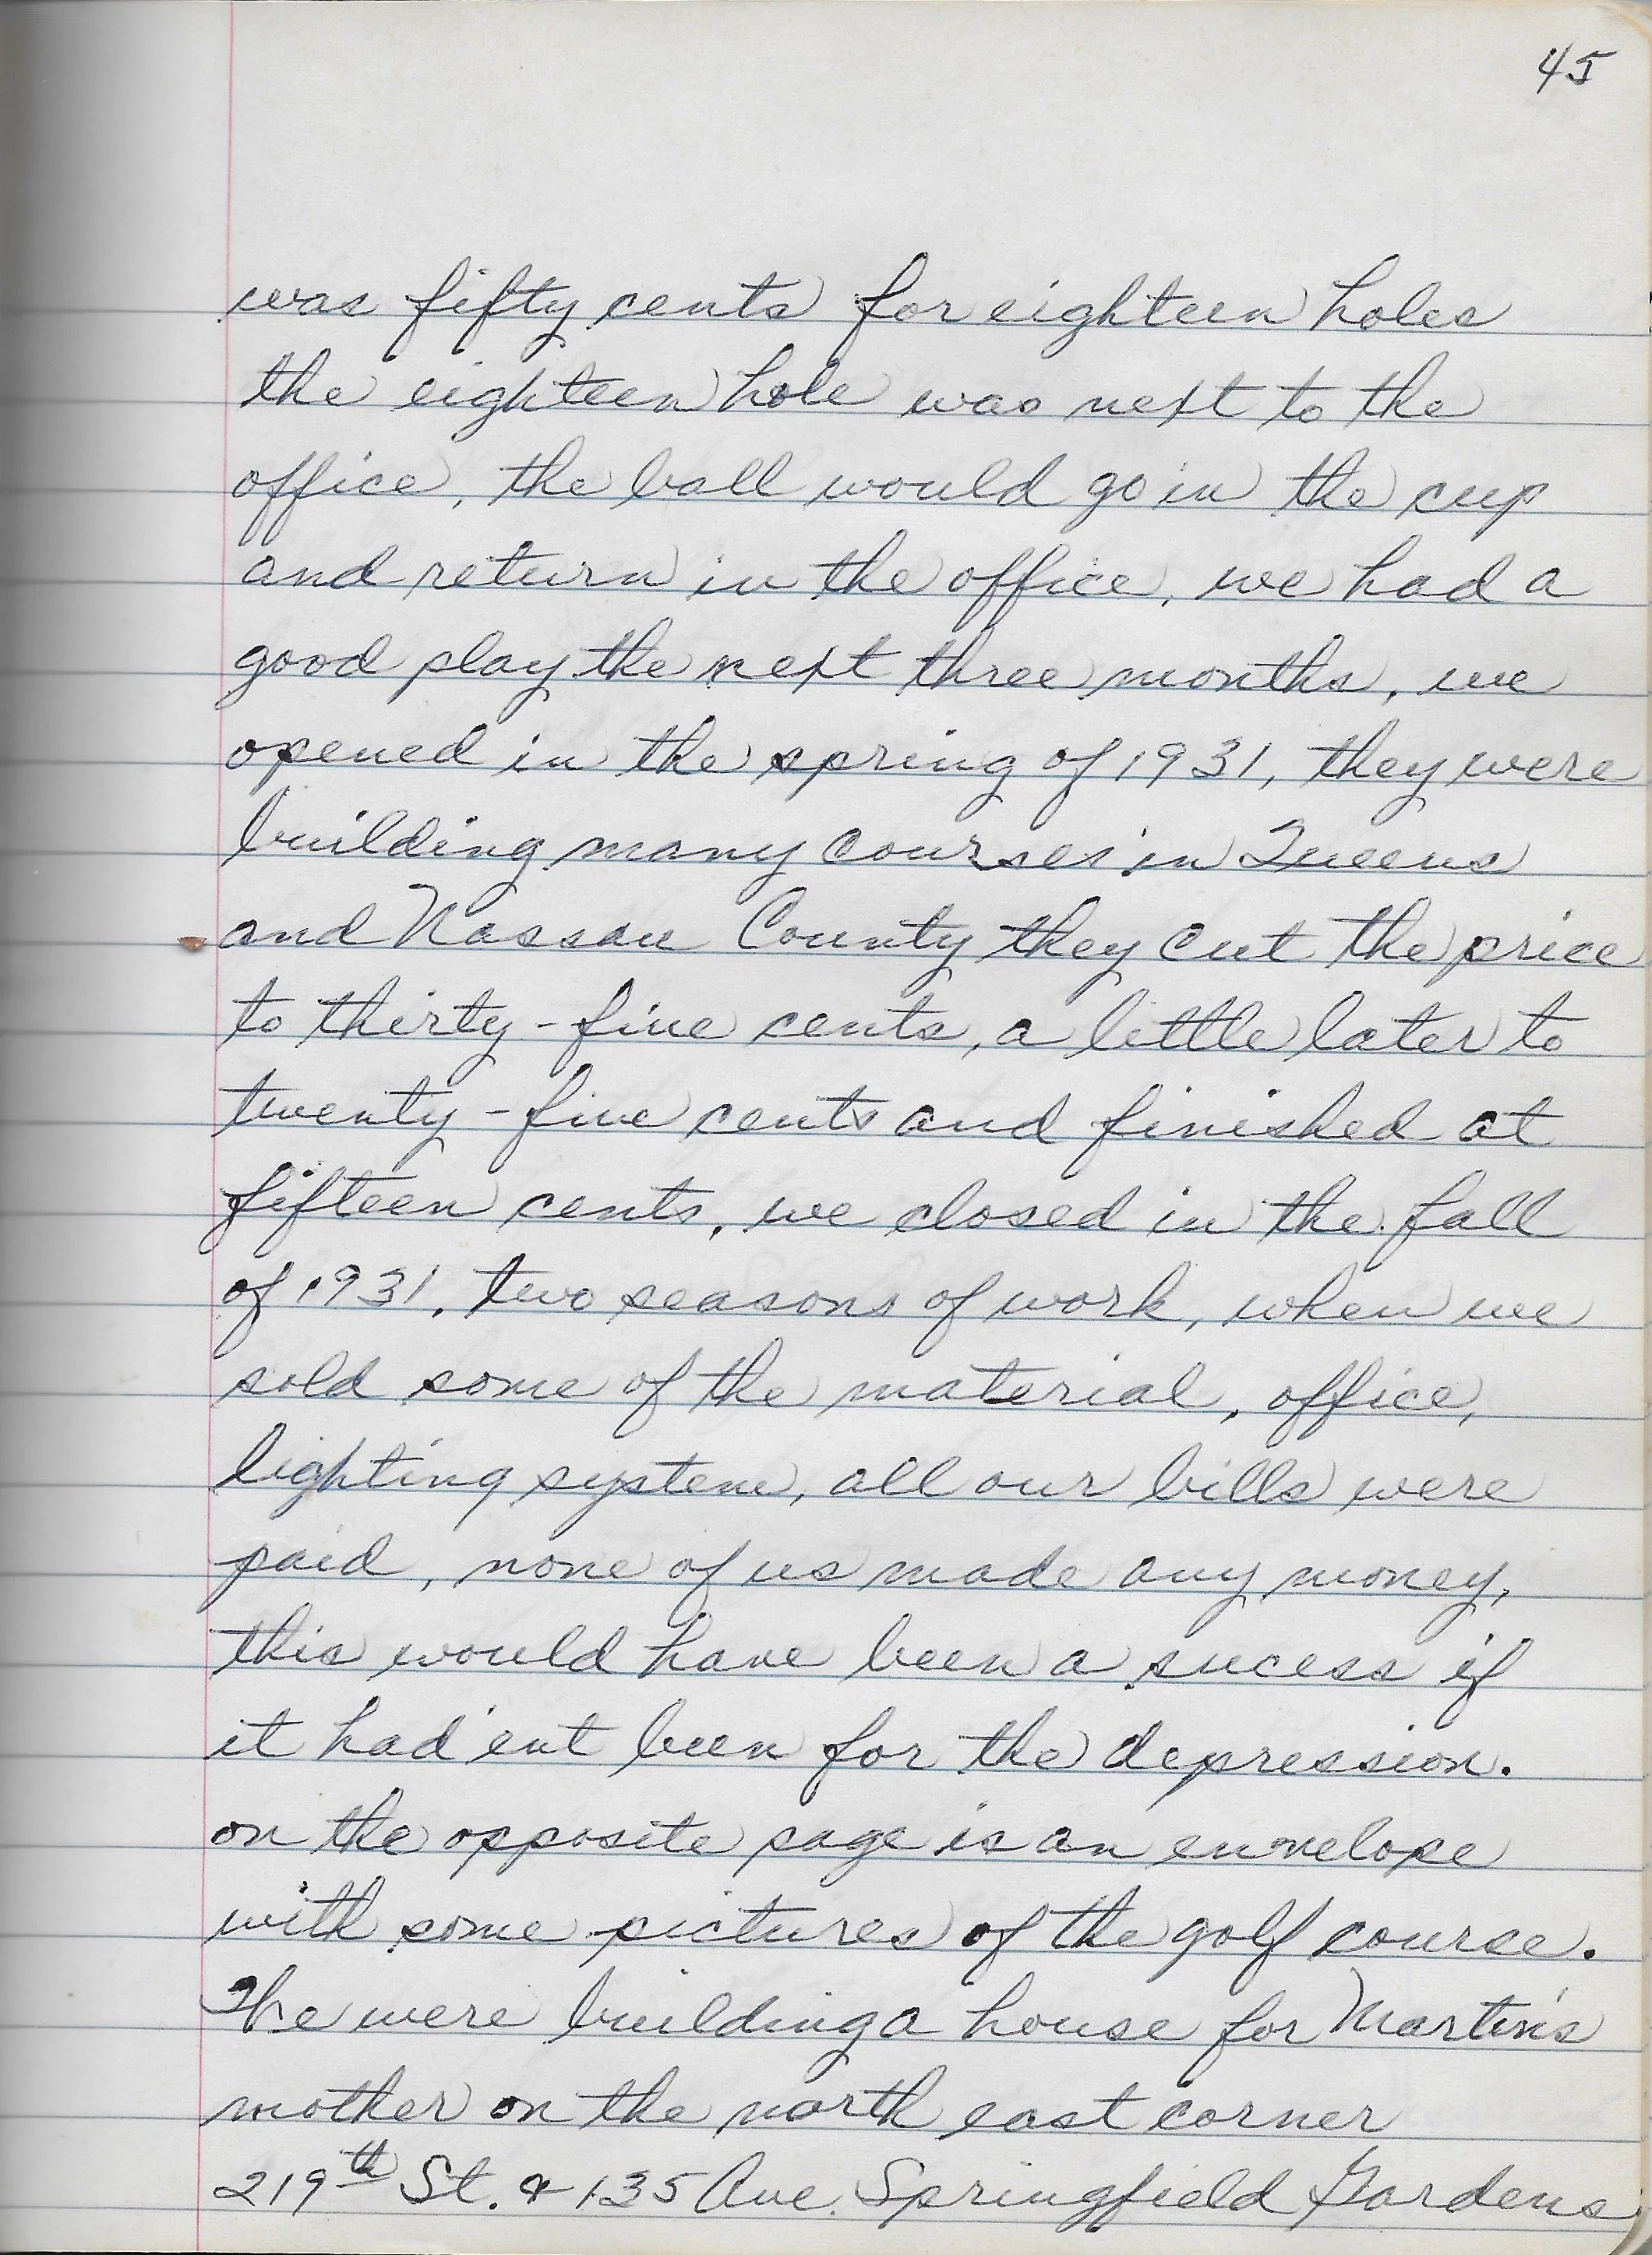 45
was fifty cents for eighteen holes
the eighteen hole was next to the
office, the ball would go in the cup
and return in the office, we had a
good play the next three months, we
opened in the spring of 1931, they were
building many courses in Queens
and Nassau County they cut the price
to thirty-five cents, a little later to
twenty-five cents and finished at
fifteen cents, we closed in the fall
of 1931, two seasons of work, when we
sold some of the material, office,
lighting system, all our bills were
paid, none of us made any money,
this would have been a sucess if
it had'ent been for the depression.
on the opposite page is an envelope
with some pictures of the golf course.
We were building a house for Martin's
mother on the north east corner
219th St. & 135 Ave. Springfield Gardens